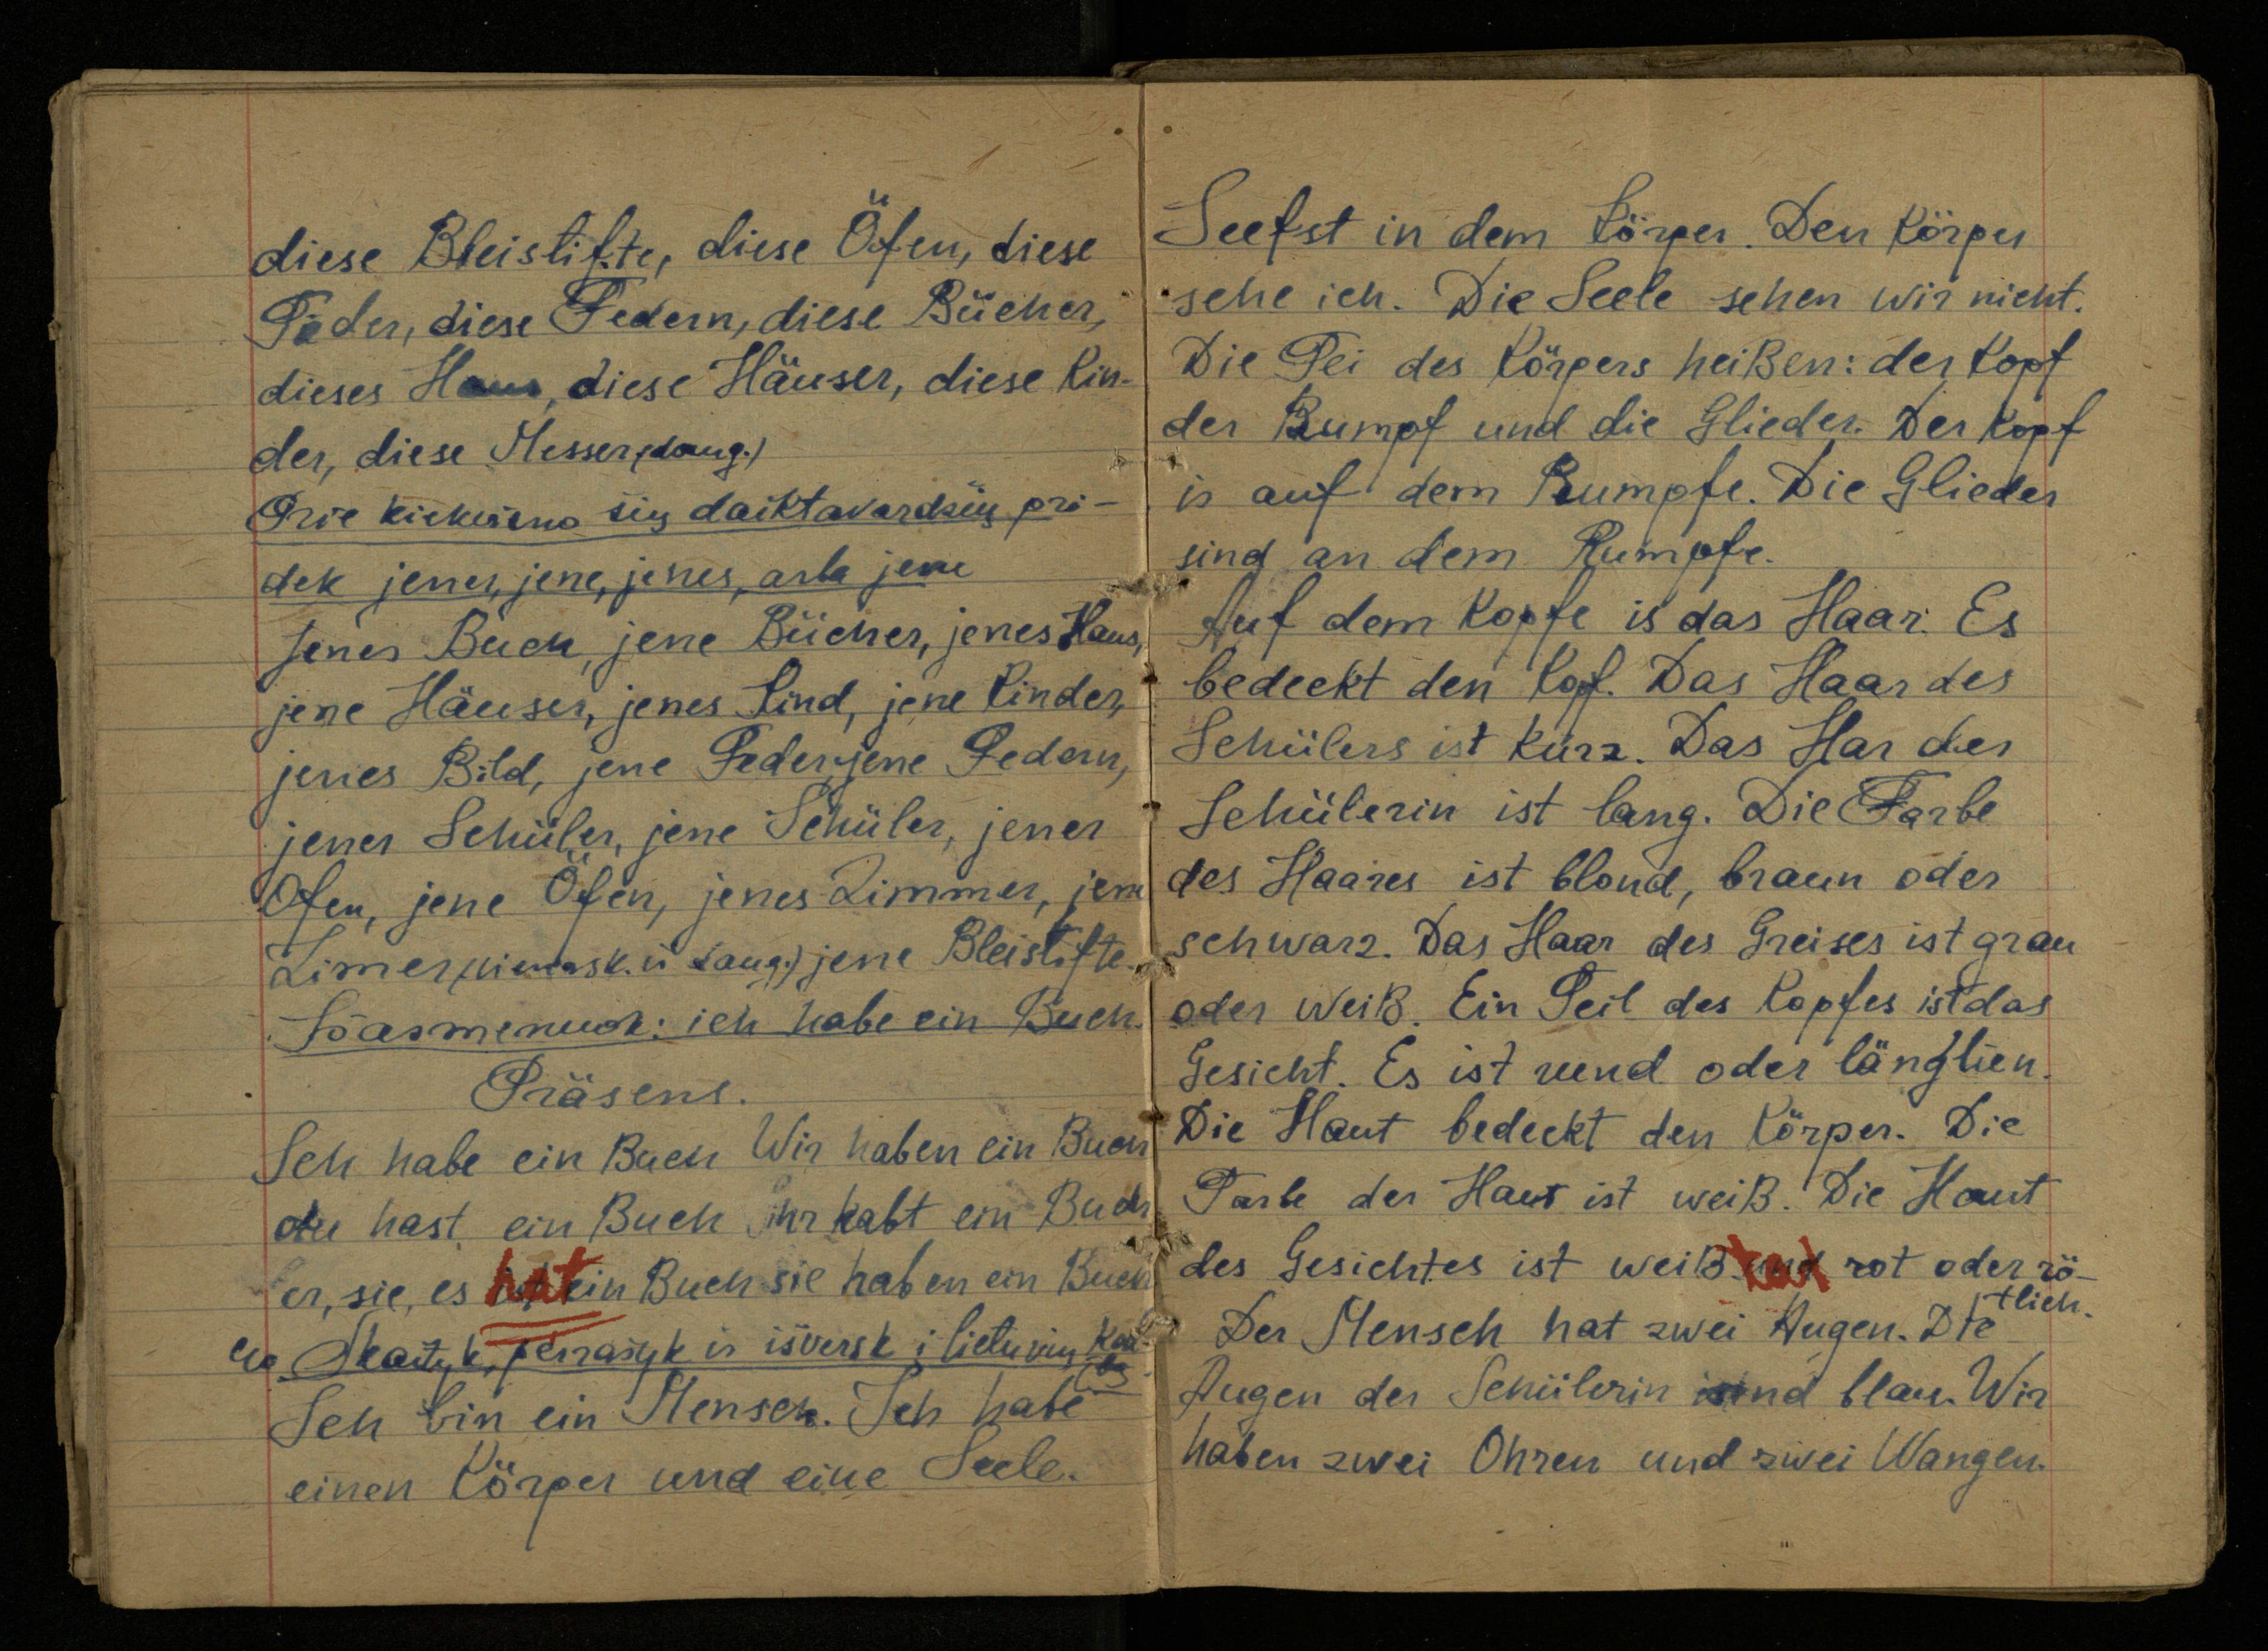 diese Bleistifte, diese Öfen, diese
Feder, diese Federn, diese Bücher,
dieses Haus, diese Häuser, diese Kin-
der, diese Messer (daug.)
Prie kiekvieno šių daiktavardžių pri-
dek jener, jene, jenes, arba jene
Jenes Buch, jene Bücher, jenes Haus,
jene Häuser, jenes Kind, jene Kinder,
jenes Bild, jene Feder, jene Federn,
jener Schüler, jene Schüler, jener
Ofen, jene Öfen, jenes Zimmer, jene
Zimer, (vienask. ir daug.) jene Bleistifte.
Išasmenuok: ich habe ein Buch.
Präsens.
Ich habe ein Buch Wir haben ein Buch
du hast ein Buch Ihr habt ein Buch
er, sie, es hat ein Buch sie haben ein Buch
Skaityk, perrašyk ir išversk į lietuvių kal-
bą
Ich bin ein Mensch. Ich habe
einen Körper und eine Seele.
Seele ist in dem Körper. Den Körper
sehe ich. Die Seele sehen wir nicht.
Die Tei des Körpers heißen: der Kopf
der Rumpf und die Glieder. Der Kopf
is auf dem Rumpfe. Die Glieder
sind an dem Rumpfe.
Auf dem Kopfe is das Haar. Es
bedeckt den Kopf. Das Haar des
Schülers ist kurz. Das Har der
Schülerin ist lang. Die Farbe
des Haares ist blond, braun oder
schwarz. Das Haar des Greises ist grau
oder weiß. Ein Teil des Kopfes ist das
Gesicht. Es ist rund oder länglich.
Die Haut bedeckt den Körper. Die
Farbe der Haut ist weiß. Die Haut
des Gesichtes ist weiß und rot oder rö-
tlich.
Der Mensch hat zwei Augen. Die
Augen der Schülerin sind blau. Wir
haben zwei Ohren und zwei Wangen.